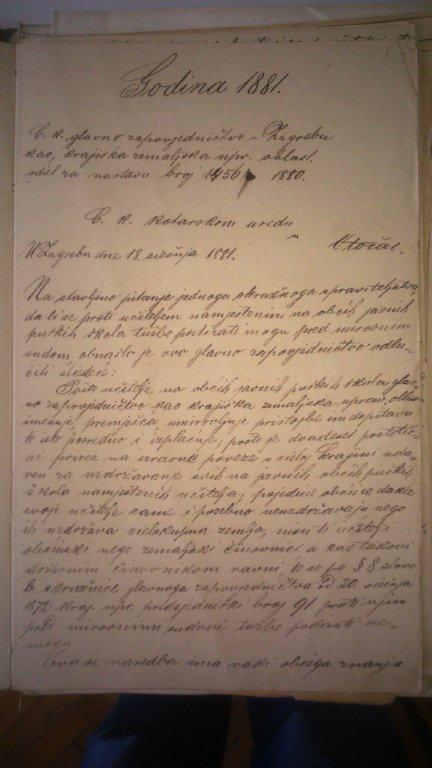 Godina 1881.
C. k. glavno zapovjedničtvo u Zagrebu
kao krajiška zemaljska upr. oblast.
odêl za nastavu broj 1880.
C. k. kotarskom uredu
u Otočac.
U Zagrebu dne 18. siečnja 1881.
Na stavljeno pitanje jednoga okružnoga upraviteljstva
da li se proti učiteljem namještenim na obćih javnih
pučkih škola tužbe podizati mogu pred mirovnim
sudom obnašlo je ovo glavno zapovjedničtvo odlu-
čiti sliedeće:
Pošto učitelje na obćih javnih pučkih škola glav-
no zapovjedničtvo kao krajiška zemaljska uprav. oblast
imenuje, premješća, umirovljuje pristojbe im dopitava
te iste poredno i izplaćuje, pošto je dvadeset postotič-
ni prirez na izravne poreze u cieloj Krajini uda-
ren za uzdržavanje svih na javnih obćih pučkih
škola namještenih učitelja; pojedine obćine dakle
svoje učitelje same i posebno neuzdržavaju nego
ih uzdržava cielokupna zemlja, nisu ti učitelji
obćinski nego zemaljski činovnici a kao takovi
državnim činovnikom ravni te se po § 8 slovo
b okružnice glavnoga zapovjedničtva od 20. siečnja
1872 kraj. upr. predsjednički broj 91 proti njim
pred mirovnimi sudovi tužbe podizati ne-
mogu.
Ova se naredba ima radi obćega znanja